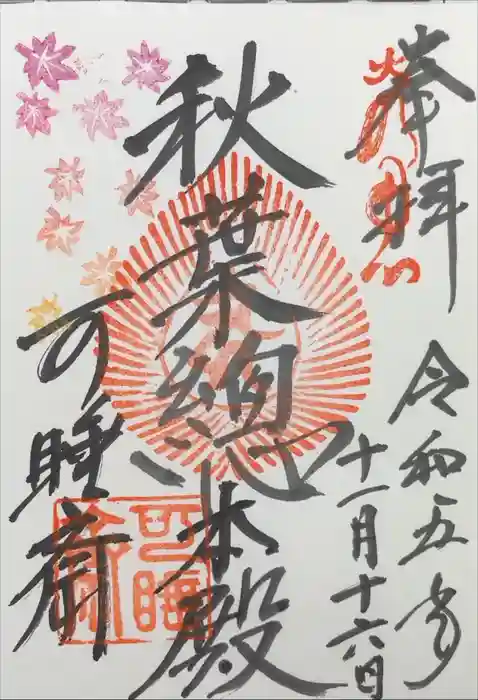 奉拝
令和五年
十一月十六日
秋葉總本殿
可睡斎
可睡